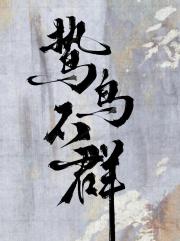 鸷鸟不群